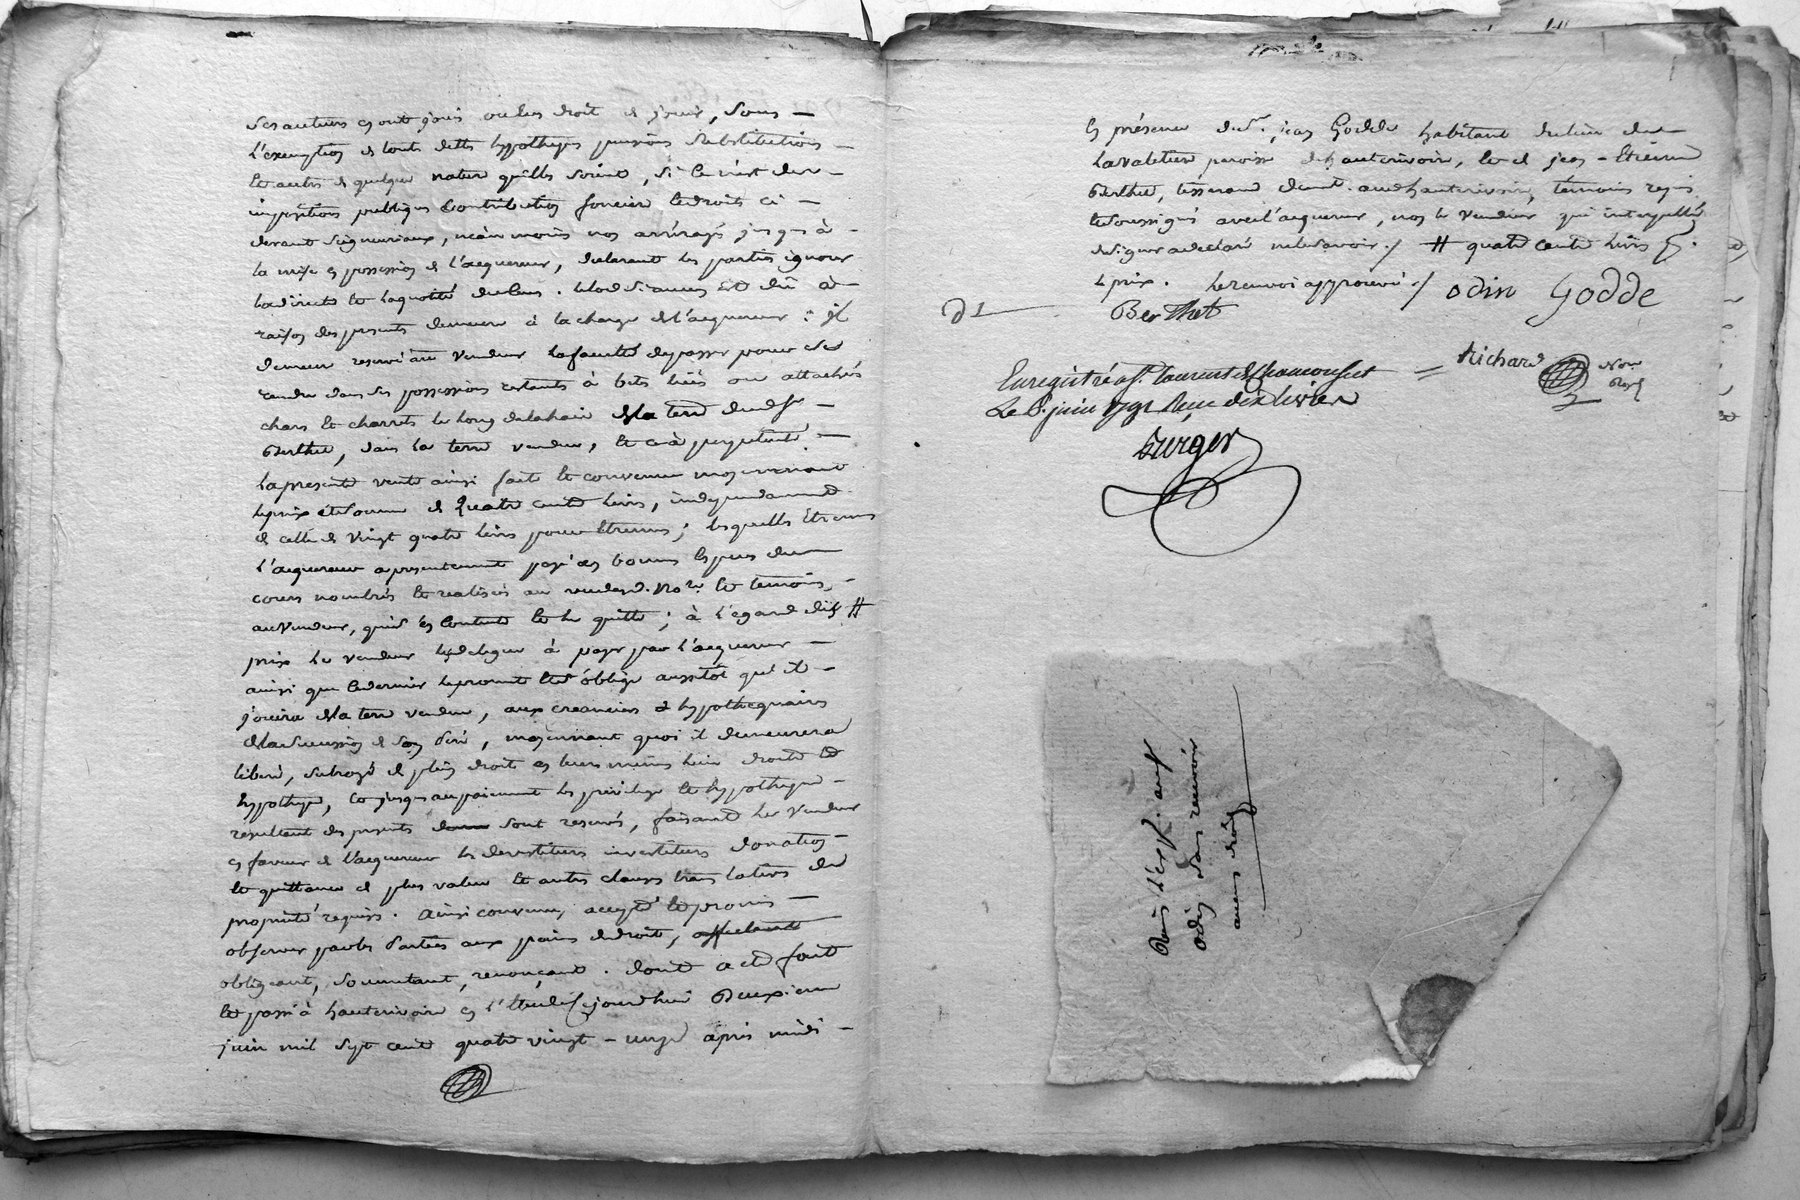 ses auteurs en ont joui ou eu droit de jouir, sous
l'exemption de touts dettes hypotheques pensions substitutions
et autres de quelque nature qu'elles soient, si ce n'est des
impositions publiques contribution fonciere et droits ci
devant seigneuriaux, neanmoins nos arrérages jusques à
la mise en possession de l'acquereur, declarant les parties ignorer
la directe et la quotité
raison des presents demeure à la charge de l'acquereur : il
demeure reservé au vendeur la faculté de passer pour se
rendre dans ses possessions restants à bets liées ou attachés
chars et charrets le long de la haie de la terre dudt sr
Berthet, dans la terre vendue, et ce à perpetuité
la presente vente ainsi faite et convenue moyennant
le prix et somme de Quatre cents livres, independamment
de celle de vingt quatre livres pour etrennes ; lesquelles Etrennes
l'acquereur a presentement payé en bonnes especes du
cours nombrés et realisés au vendeur
au vendeur, qui s'en contente et le quitte ; à l'egard dudt #
prix le vendeur le delegue à payer par l'acquereur
ainsi que ce dernier le promet et s'oblige aussitôt qu'il
jouira de la terre vendue, aux creanciers hypothequaires
de la succession de son pere, moyennant quoi il demeurera
liberé, subrogé de plein droit en leurs mêmes lieu droits et
hypotheque, et jusques au paiement les privilege et hypotheque
resultent des presents sont reservés, faisant le vendeur
en faveur de l'acquereur les devestitures investitures donation
et quittance de plus value et autres clauses translatives de
proprieté requises. Ainsi convenu, accepté et promis
observer par les Parties aux peines de droit,
obligeant, soumettant, renonçant. dont acte fait
et passé à hauterivoire en l'étude ce jourd'hui Deuxieme
juin mil sept cents quatre vingt - onze après midi
En présence de sr. jean Godde habitant du lieu de
Lavaletiere paroisse de hauterivoire, et de jean - Etienne
Berthet, tisserand demt. audt hauterivoire, temoins requis
et soussignés avec l'acquereur, non le vendeur qui interpellé
de signer a declaré ne le savoir ./ # quatre cents livres
le prix. le renvoi approuvé ./ odin Godde
Berthet
Richard
Nore
Royal
Enregistré a St. Laurent de chamousset
Le 8. juin 1791 Reçu dix livres
Burger
Remis l'exp. au sr
odin sans recevoir
aucun droit